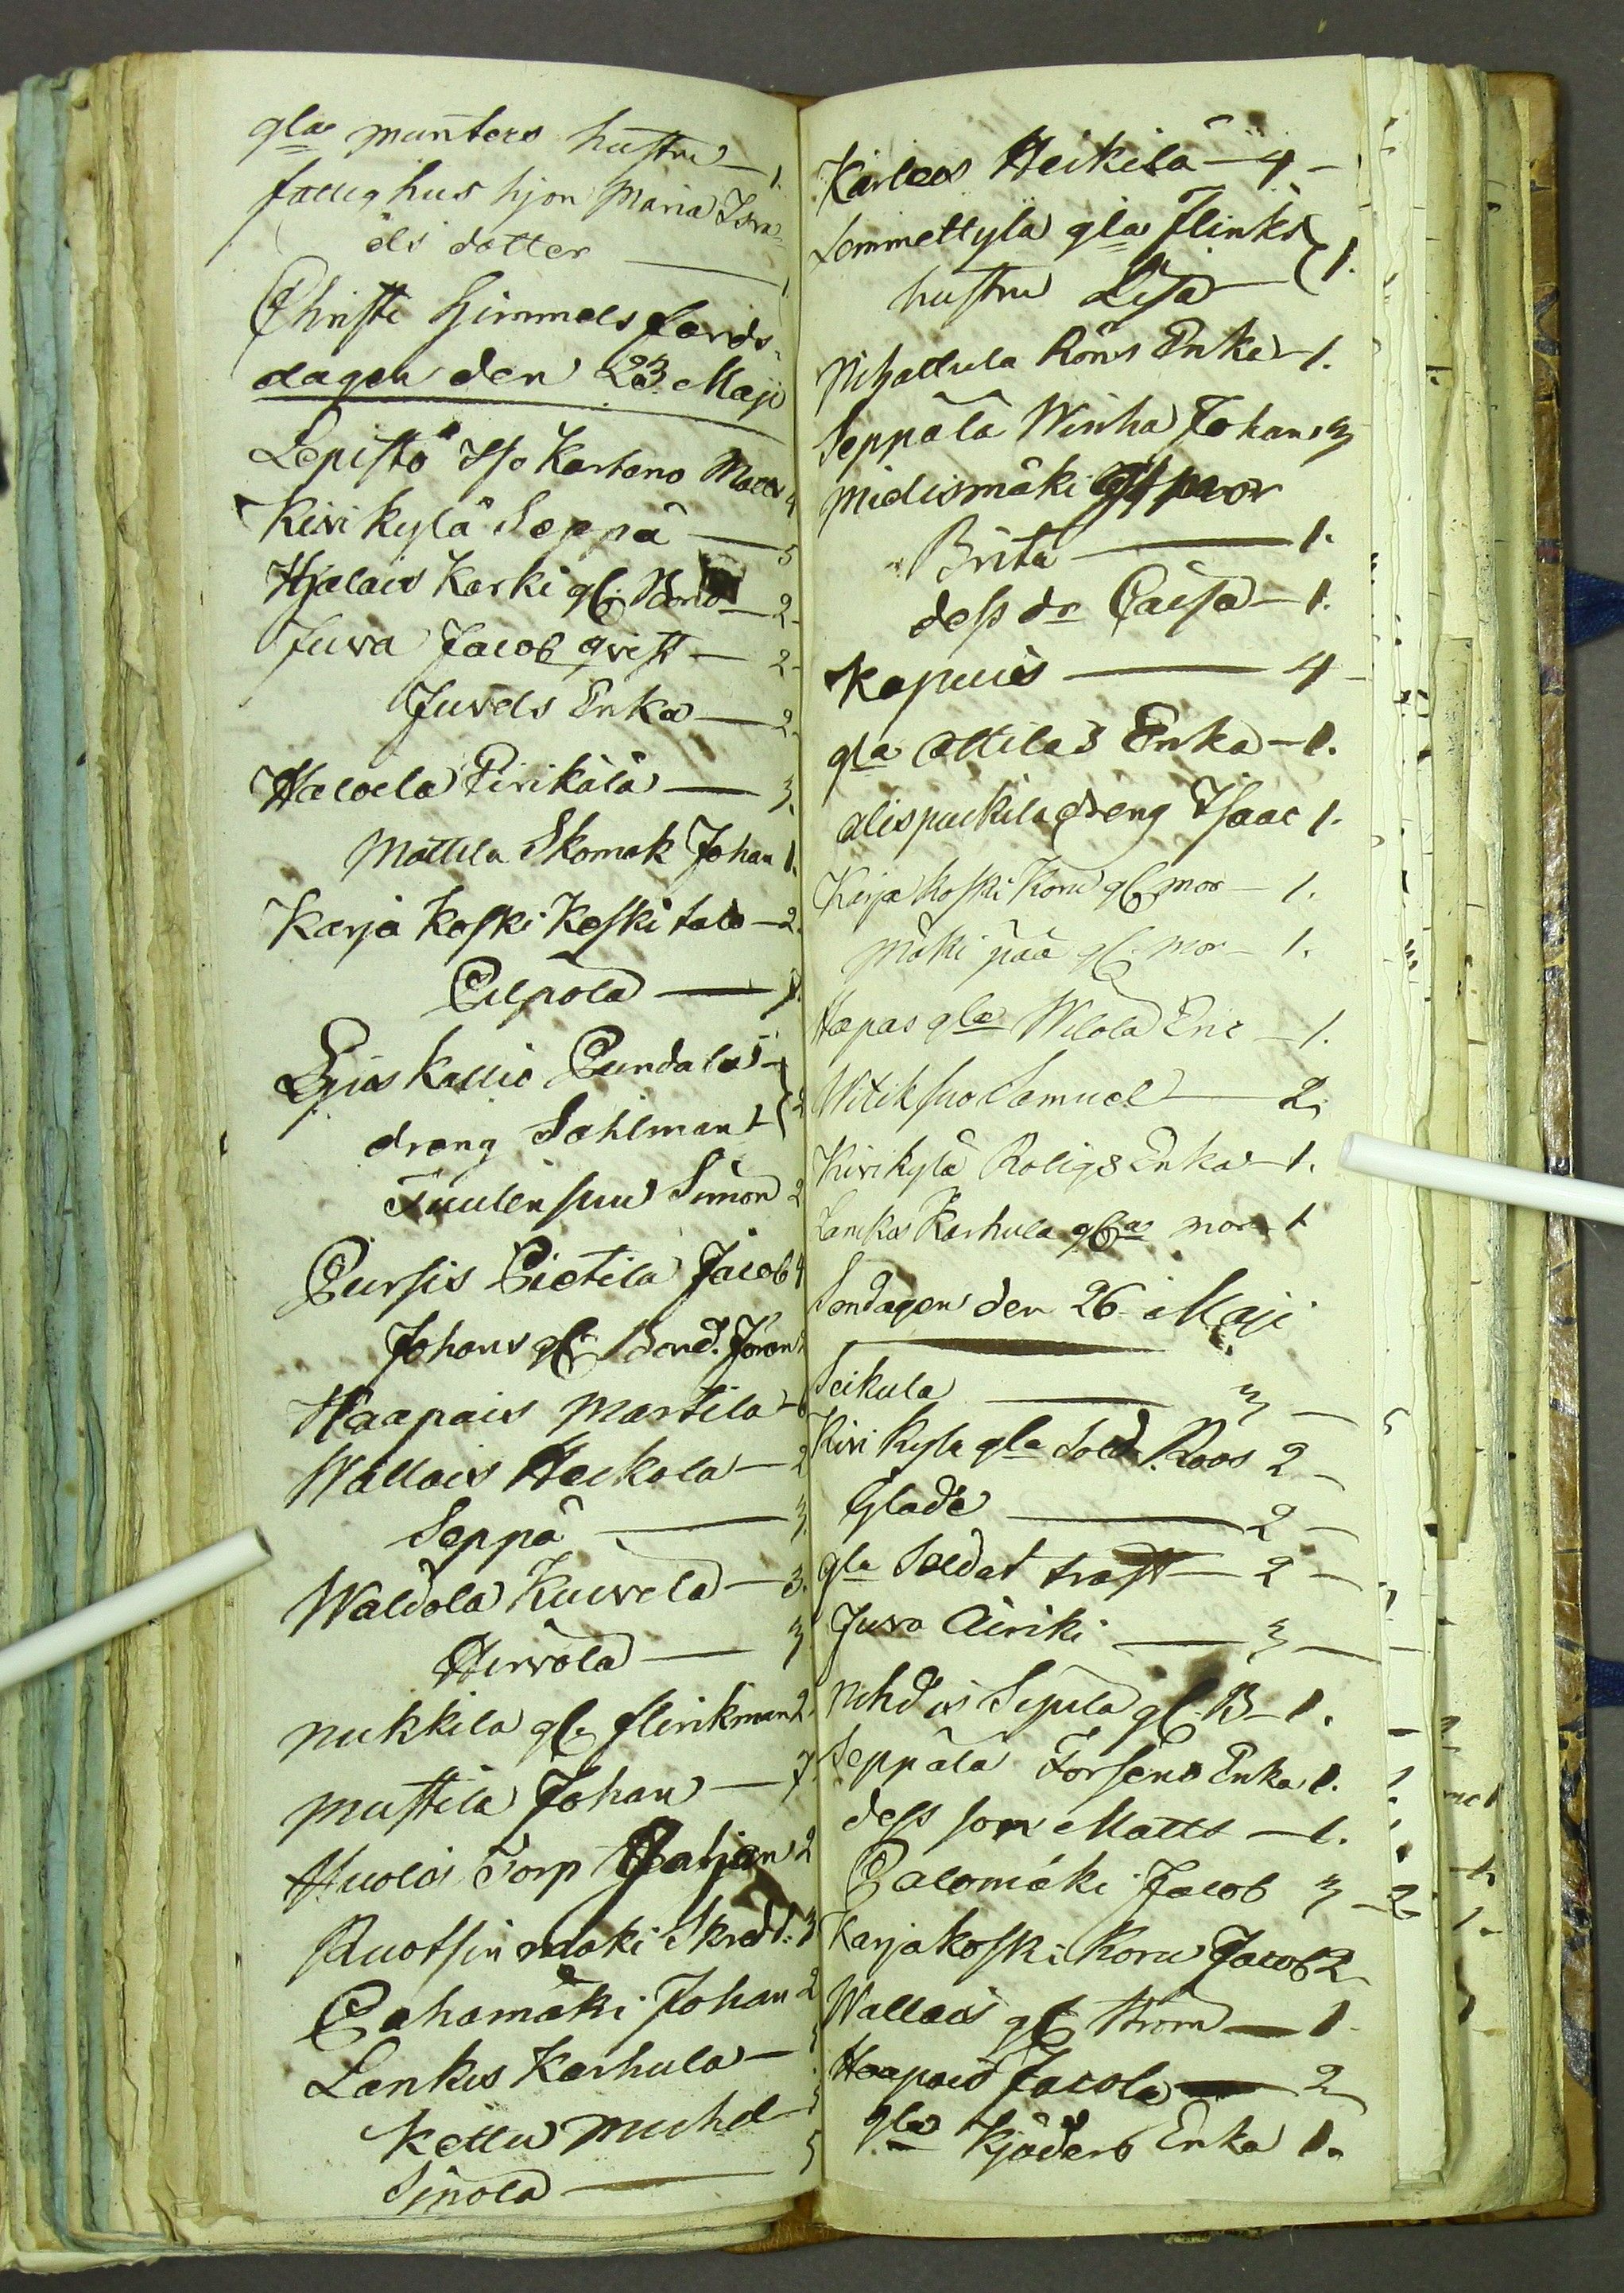 gla munters hustru — 1.
fattighus hjon Maria Isra-
els dotter — 1
Christi Himmelsfärds-
dagen den 23 Maji
Lepistö Iso Kartano Matts 4
Kirikylä Seppä — 5
Hjalais Karki gl. Bond — 2
Juva Jacob qvist — 2
Juvels Enka — 2
Harola Pirikälä — 3.
Mattila Skomak Johan 1.
Karja Koski Keskitalo — 2.
Pilpola — 1.
Lyus Kallio Pundalas
dräng Sahlman 2
Tuulensuu Simon 2
Pursis Pietila Jacob 4
Johans gl. Bond. Jöran
Haapais Martila
Wallais Heikola — 2
Seppä — 3.
Waldola Kuvela — 3.
Hirvola — 3
Nukkila gl. flinkman 2.
Mustila Johan — 7.
Huolis Torp 2
Ruotsin mäki Skredd. 3
Pahamäki Johan 2
Lankis Karhula — 5
Kettu Michel
Sipola — 5
Karlais Heikilä — 4 —
Lemmettylä gla Flinks
hustru Lisa — 1.
Nihattula Röns Enka — 1.
Seppälä Winha Johan 3
Midismäki
Brita — 1.
dess dr Caisa — 1.
Kapuis — 4 —
gla Attilas Enka — 1.
Alispaikila dreng Isaac 1.
Karjakoski Koru gl mor — 1.
mäki pää gl. mor — 1.
Hapas gla Wilola Eric — 1.
Witiksuo Samuel — 2.
Kirikylä Roligs Enka — 1.
Lankis Karhula gla mor — 1
Söndagen den 26 Maji
Seikula — 3 —
Kirikyla gla Sold. Roos 2 —
Glade — 2 —
gla Soldat trast — 2 —
Juva Airiki — 3 —
Sipula gl. B — 1.
Seppälä Forsens Enka 1.
dess son Matts — 1.
Palomäki Jacob 3 — 2
Karjakoski Koru Jacob 2
Wallais gl Krom — 1
Haapais Jacola — 2
gla Kjäders Enka 1.